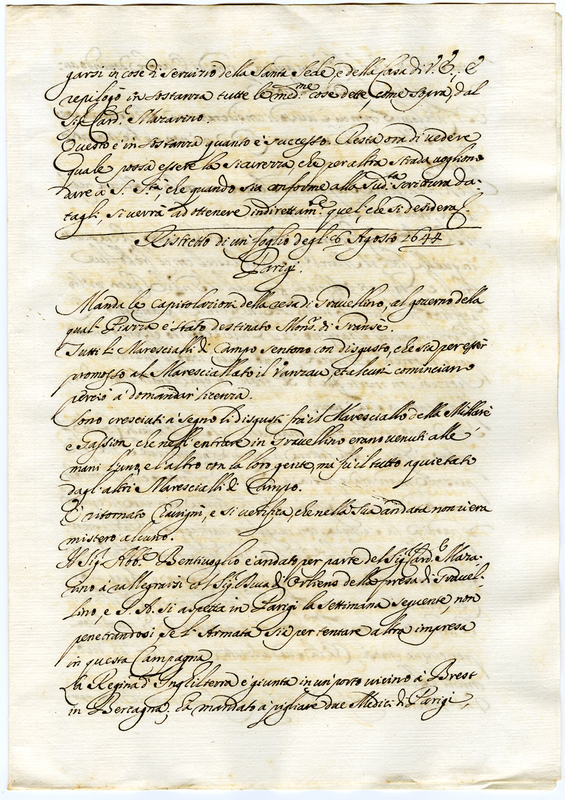 garsi in cose di servizio della Santa Sede, e della Casa di V. E., e
repilogò in sostanza tutte le med.me cose dette, come sopra, dal
Sig. Card. Mazarino.
Questo è in sostanza quanto è successo. Resta ora di vedere
quale possa essere la sicurezza, che per altra strada vogliono
dare à S. S.tà che quando sia conforme alla sud.ta scrittura da-
tagli, si verrà ad ottenere indirettam.te quel, che si desidera.
Ristretto di un foglio degl' 6 Agosto 1644
Parigi.
Manda le Capitolazioni della resa di Gravellino, al governo della
qual Piazza è stato destinato Mons. di Gransè.
Tutti li Marescialli di Campo sentono con disgusto, che sia per esser
promosso al Maresciallato il Ranzau, et alcuni cominciano
perciò à domandar licenza.
Sono cresciuti à segno li disgusti frà il Maresciallo della Migliarè
e Gassion, che nell' entrare in Gravellino erano venuti alle
mani l'uno, e l'altro con la loro gente, mà fù il tutto aquietato
dagl' altri Marescialli di Campo.
È ritornato Chavignì, e si verifica, che nella sua andata non vi era
mistero alcuno.
Il Sig. Abb.e Bentivoglio è andato per parte del Sig. Card. Maza-
rino à rallegrarsi col Sig. Duca d'Orliens della presa di Gravel-
lino, e S. A. si aspetta in Parigi la settimana seguente non
penetrandosi se l'Armata sia per tentare altra impresa
in questa Campagna.
La Regina d'Inghilterra è giunta in un porto vicino à Brest
in Bertagna, hà mandato à pigliare due Medici di Parigi,